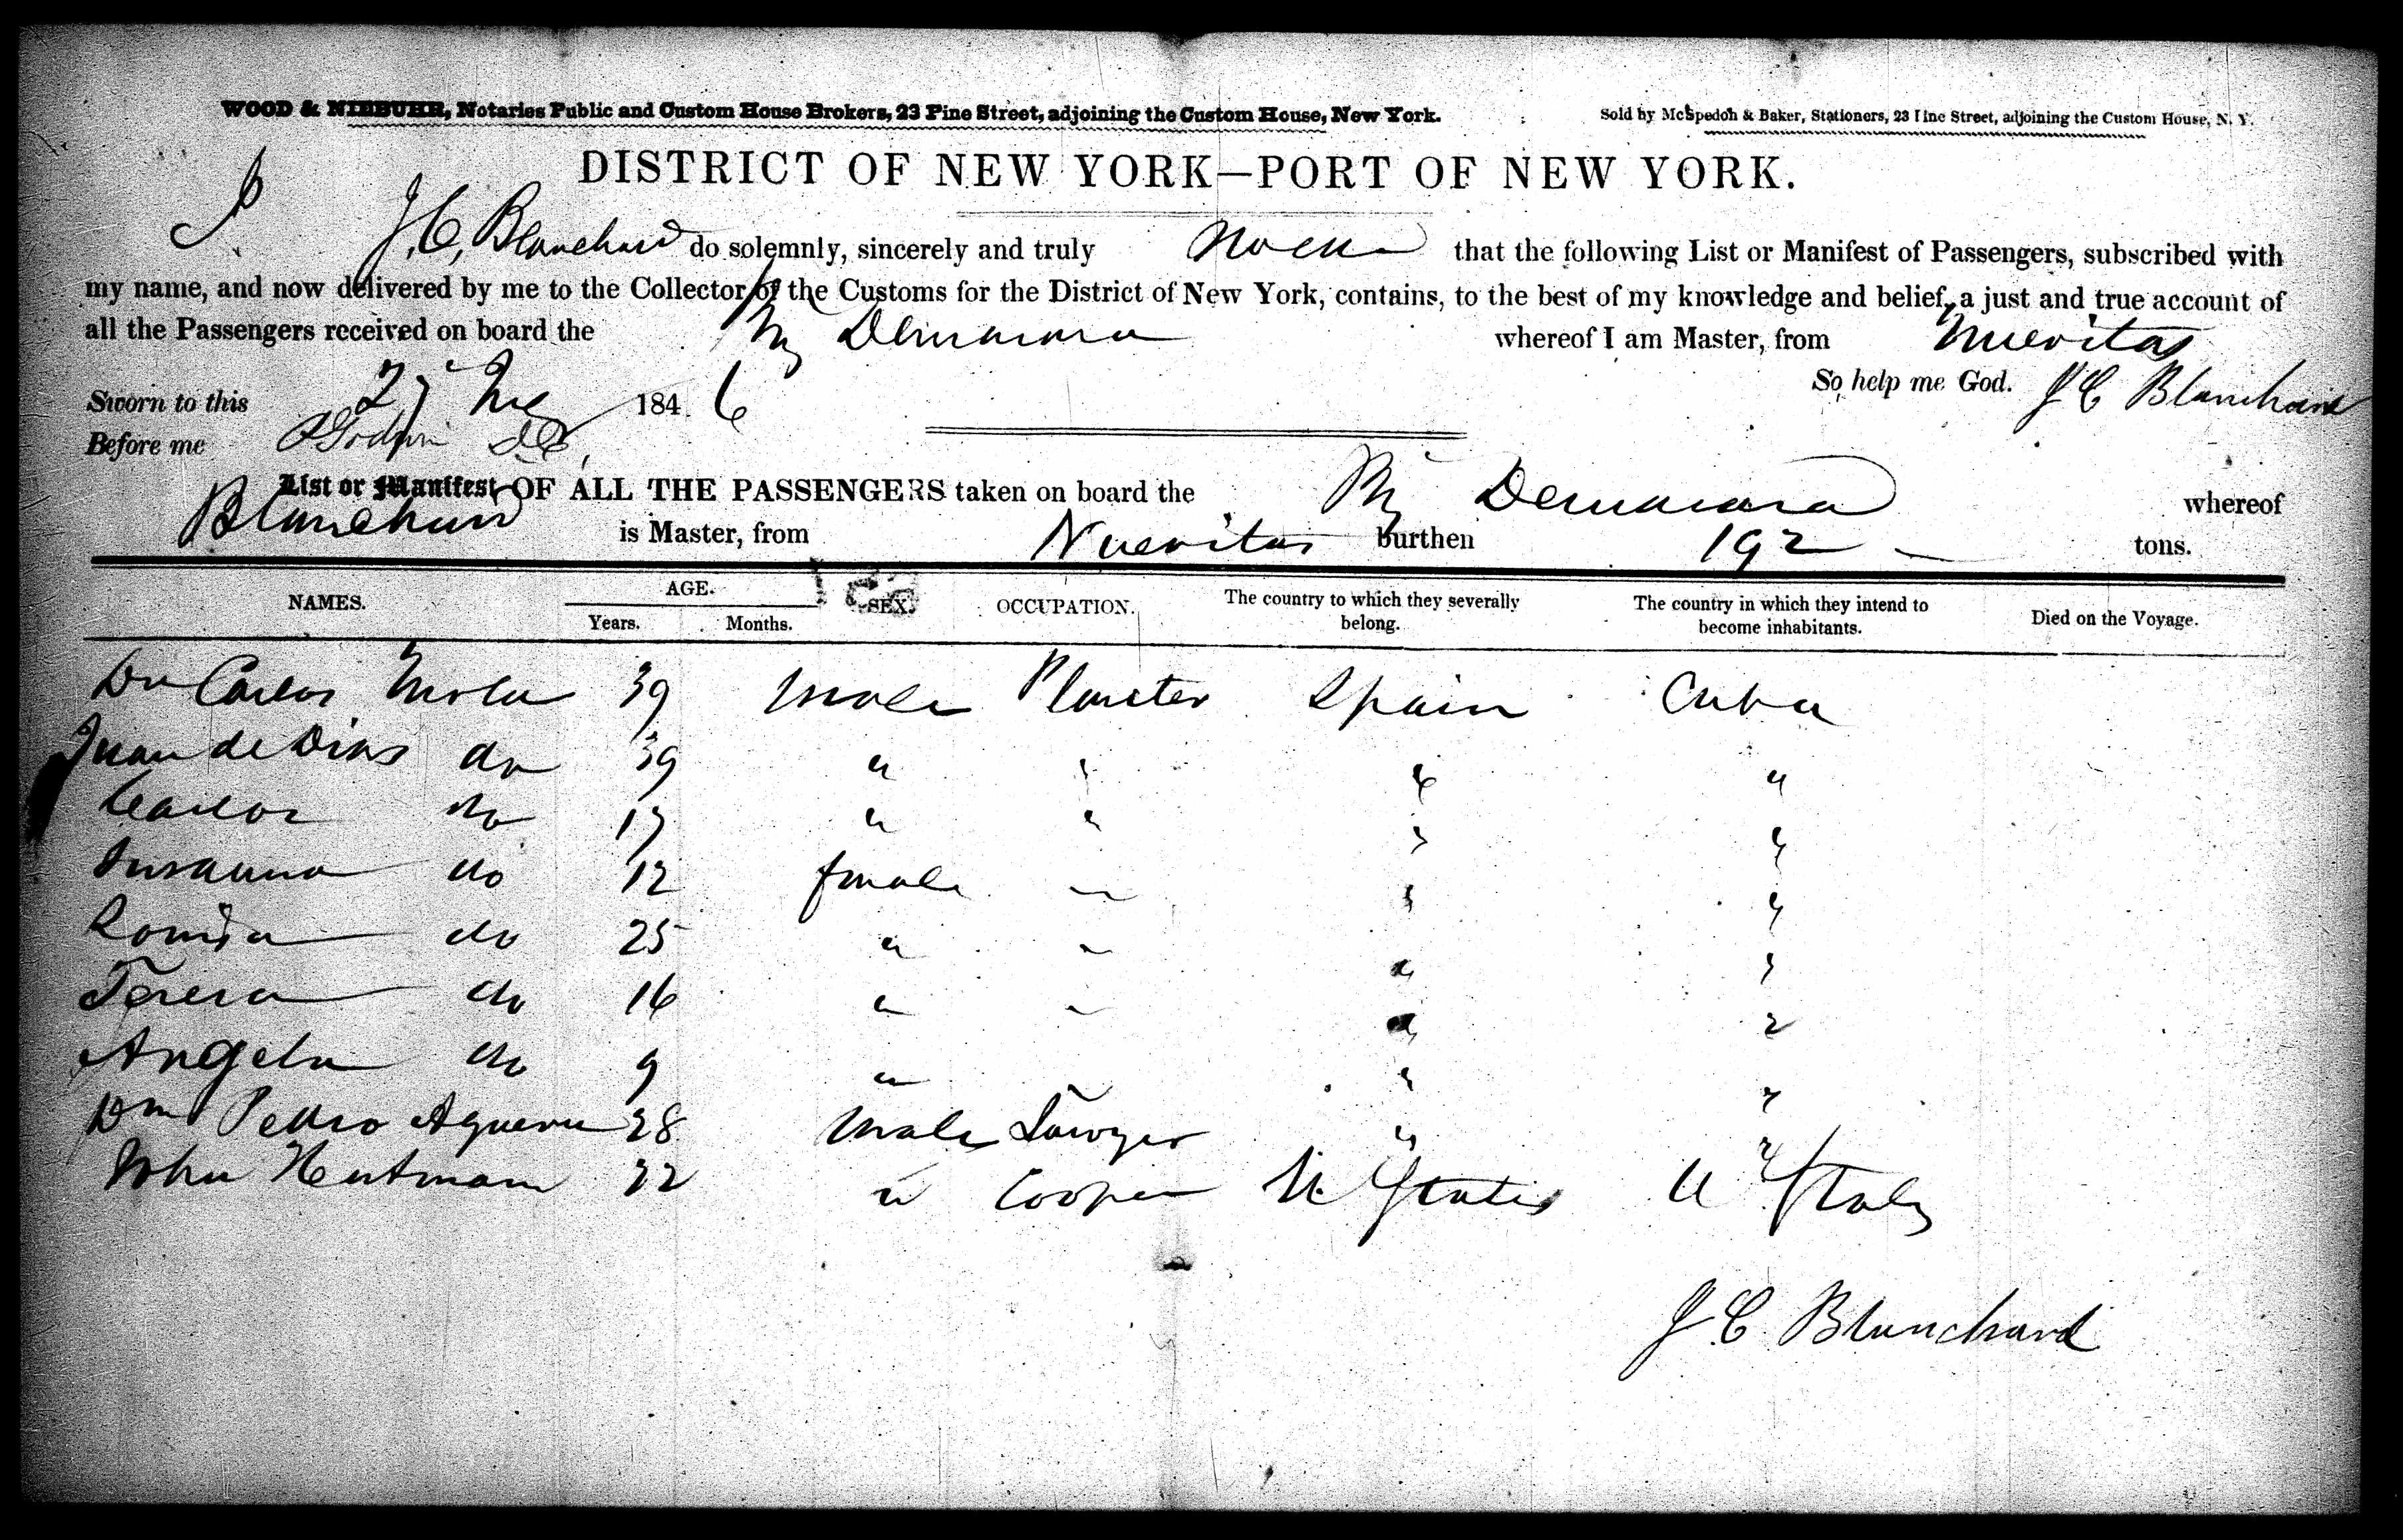 WOOD & NIEBUHR, Notaries Public and Custom House Brokers, 23 Pine Street, adjoining the Custom House, New York.
Sold by McSpedon & Baker, Stationers, 23 Pine Street, adjoining the Custom House, N. Y.
DISTRICT OF NEW YORK—PORT OF NEW YORK.
I J. C. Blanchard do solemnly, sincerely and truly that the following List or Manifest of Passengers, subscribed with
my name, and now delivered by me to the Collector of the Customs for the District of New York, contains, to the best of my knowledge and belief, a just and true account of
all the Passengers received on board the Demarara whereof I am Master, from Nuevitas
So help me God. J C Blanchard
Sworn to this 27 184 6
Before me
List or Manifest OF ALL THE PASSENGERS taken on board the Demarara whereof
Blanchard is Master, from Nuevitas burthen 192 tons.
NAMES. AGE. Years. Months. SEX. OCCUPATION. The country to which they severally belong. The country in which they intend to become inhabitants. Died on the Voyage.
Dn Carlos Mola 39 male Planter Spain Cuba
Juan de Dios do 39 " " " "
Carlos do 17 " " " "
Susanna do 12 female — " "
do 25 " — " "
Teresa do 16 " — " "
Angela do 9 " " "
Dn Pedro Aguero 28 male Lawyer " "
John 22 " Cooper U States U States
J C Blanchard